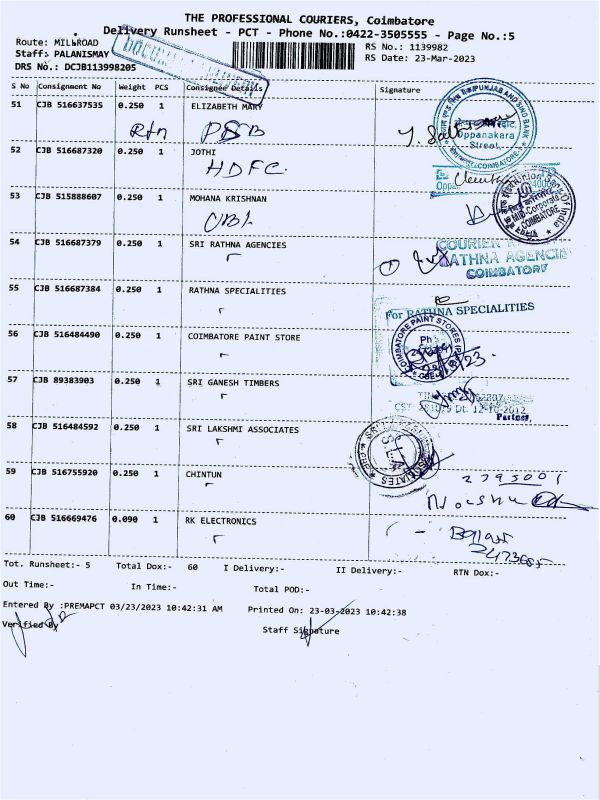 THE PROFESSIONAL COURIERS, Coimbatore
Delivery Runsheet - PCT - Phone No.:0422-3505555 - Page No.:5
Route: MILLROAD
RS No.: 1139982
Staff: PALANISMAY
RS Date: 23-Mar-2023
DRS No.: DCJB113998205
S No Consignment No Weight PCS Consignee Details Signature
51 CJB 516637535 0.250 1 ELIZABETH MARY
Rtn PSB
PUNJAB AND SIND BANK
Oppanakara
Street
COIMBATORE
52 CJB 516687320 0.250 1 JOTHI
HDFC
53 CJB 515888607 0.250 1 MOHANA KRISHNAN
UBI
Union Bank Of India
Mid-Corporate
COIMBATORE
54 CJB 516687379 0.250 1 SRI RATHNA AGENCIES
COURIER
RATHNA AGENCIE
COIMBATORE
55 CJB 516687384 0.250 1 RATHNA SPECIALITIES
For RATHNA SPECIALITIES
56 CJB 516484490 0.250 1 COIMBATORE PAINT STORE
COIMBATORE PAINT STORES
Ph
57 CJB 89383903 0.250 1 SRI GANESH TIMBERS
Dt. 12-10-2012
Partner
58 CJB 516484592 0.250 1 SRI LAKSHMI ASSOCIATES
ASSOCIATES
59 CJB 516755920 0.250 1 CHINTUN
2795001
60 CJB 516669476 0.090 1 RK ELECTRONICS
Tot. Runsheet:- 5 Total Dox:- 60 I Delivery:- II Delivery:- RTN Dox:-
Out Time:- In Time:- Total POD:-
Entered By :PREMAPCT 03/23/2023 10:42:31 AM Printed On: 23-03-2023 10:42:38
Verified By Staff Signature